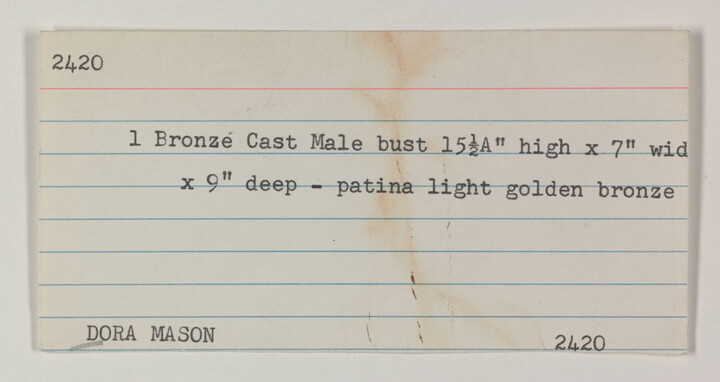 2420
1 Bronze Cast Male bust 15½A" high x 7" wid
x 9" deep - patina light golden bronze
DORA MASON 2420